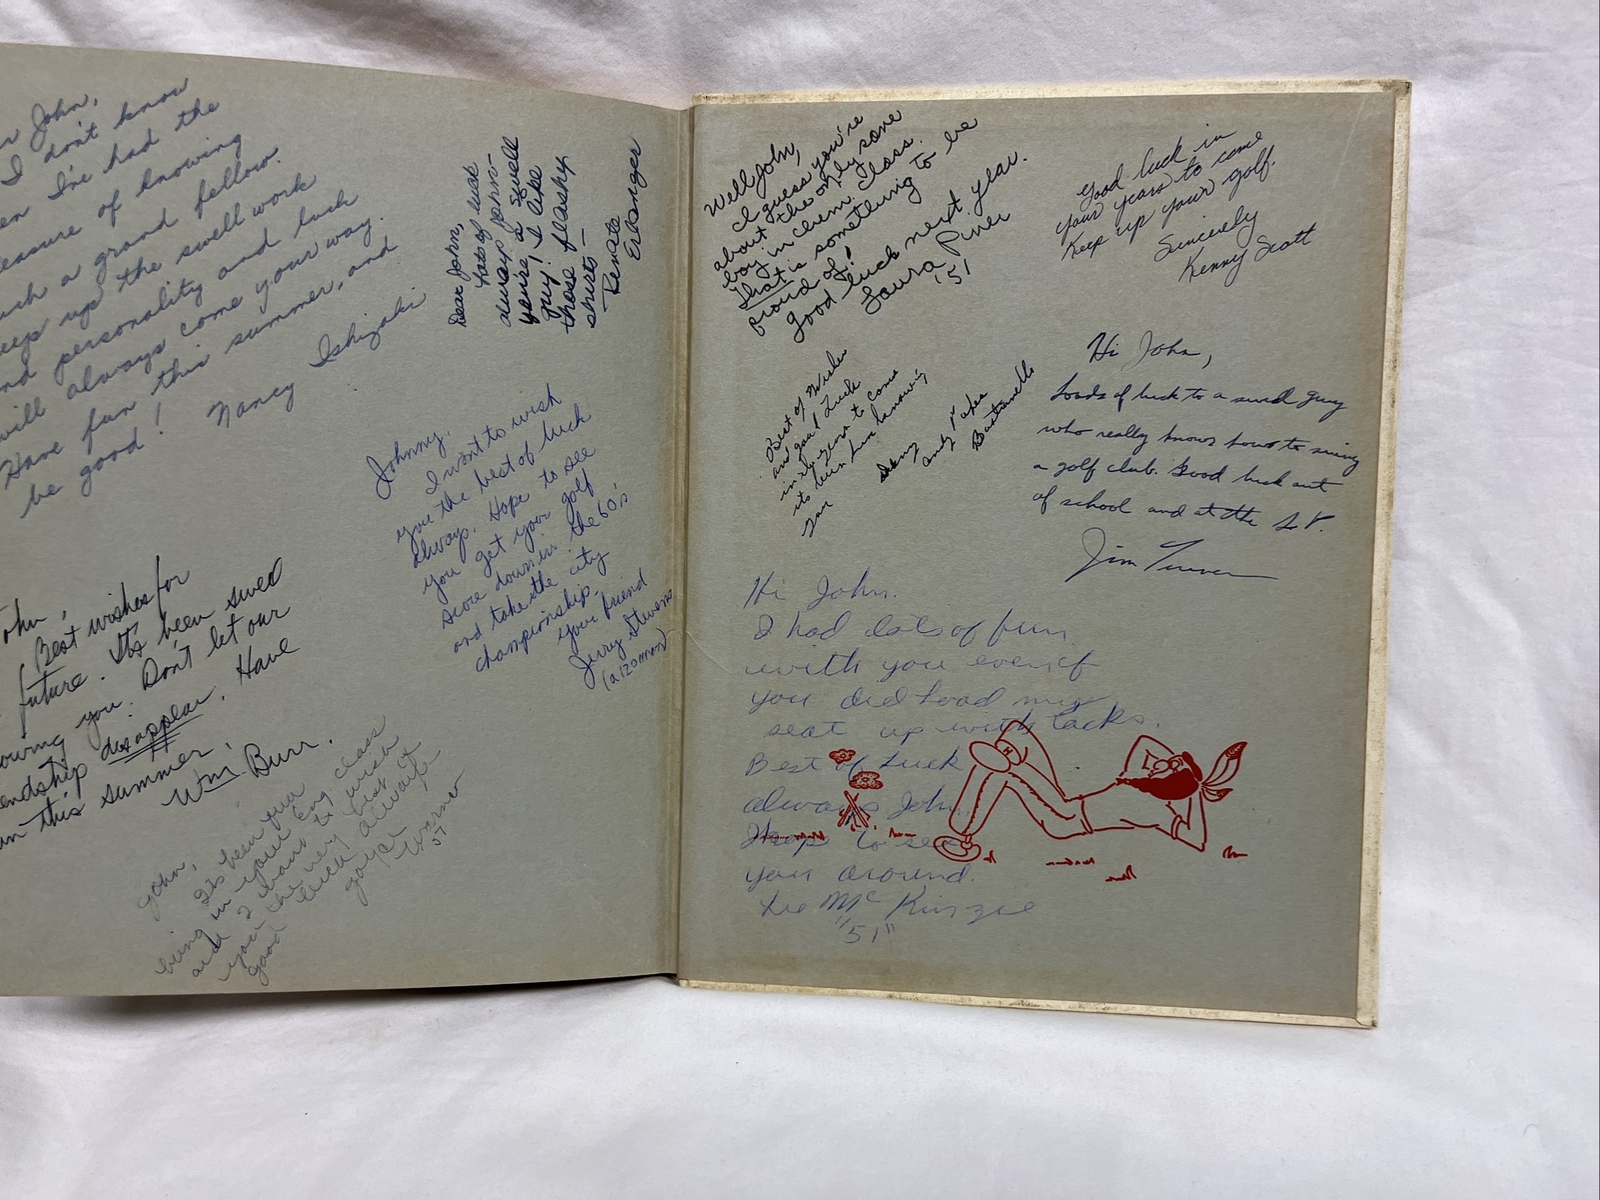 John,
I don't know
I've had the
of knowing
such a grand fellow.
keep up the swell work
and personality and luck
will always come your way.
Have fun this summer, and
be good! Nancy Ishizaki
Dear John,
Lots of luck
always John-
you're a swell
guy! I like
those flashy
shirts—
Renata
Erlanger
Johnny,
I want to wish
you the best of luck
always. Hope to see
you get your golf
score down in the 60's
and take the city
championship.
Your friend
Jerry Stevens
John,
Best wishes for
future. It's been swell
you. Don't let our
disappear. Have
this summer.
Wm. Burr.
John,
Its been fun
being in your Eng. class
and I want to wish
you the very best of
good luck always
Well John,
I guess you're
about the only sane
boy in chem. class.
That is something to be
proud of!
Good luck next year.
Laura Piner
'51
Good luck in
your years to come
Keep up your golf.
Sincerely
Kenny Scott
Best of Wishes
and good Luck
in the years to come
its been fun knowing
you
Hi John,
Loads of luck to a swell guy
who really knows how to swing
a golf club. Good luck out
of school and at the
Jim
Hi John.
I had lots of fun
with you even if
you did load my
seat up with tacks.
Best of Luck
always John.
Hope to see
you around.
McKinzie
"51"